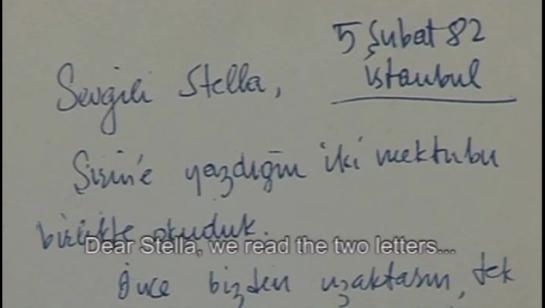 5 Şubat 82
İstanbul
Sevgili Stella,
Şirin'e yazdığın iki mektubu
birlikte okuduk.
Dear Stella, we read the two letters...
Önce bizden uzaktasın, tek